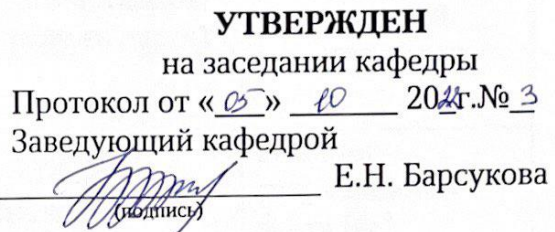 УТВЕРЖДЕН
на заседании кафедры
Протокол от «05» 10 2022г.№ 3
Заведующий кафедрой
Е.Н. Барсукова
(подпись)